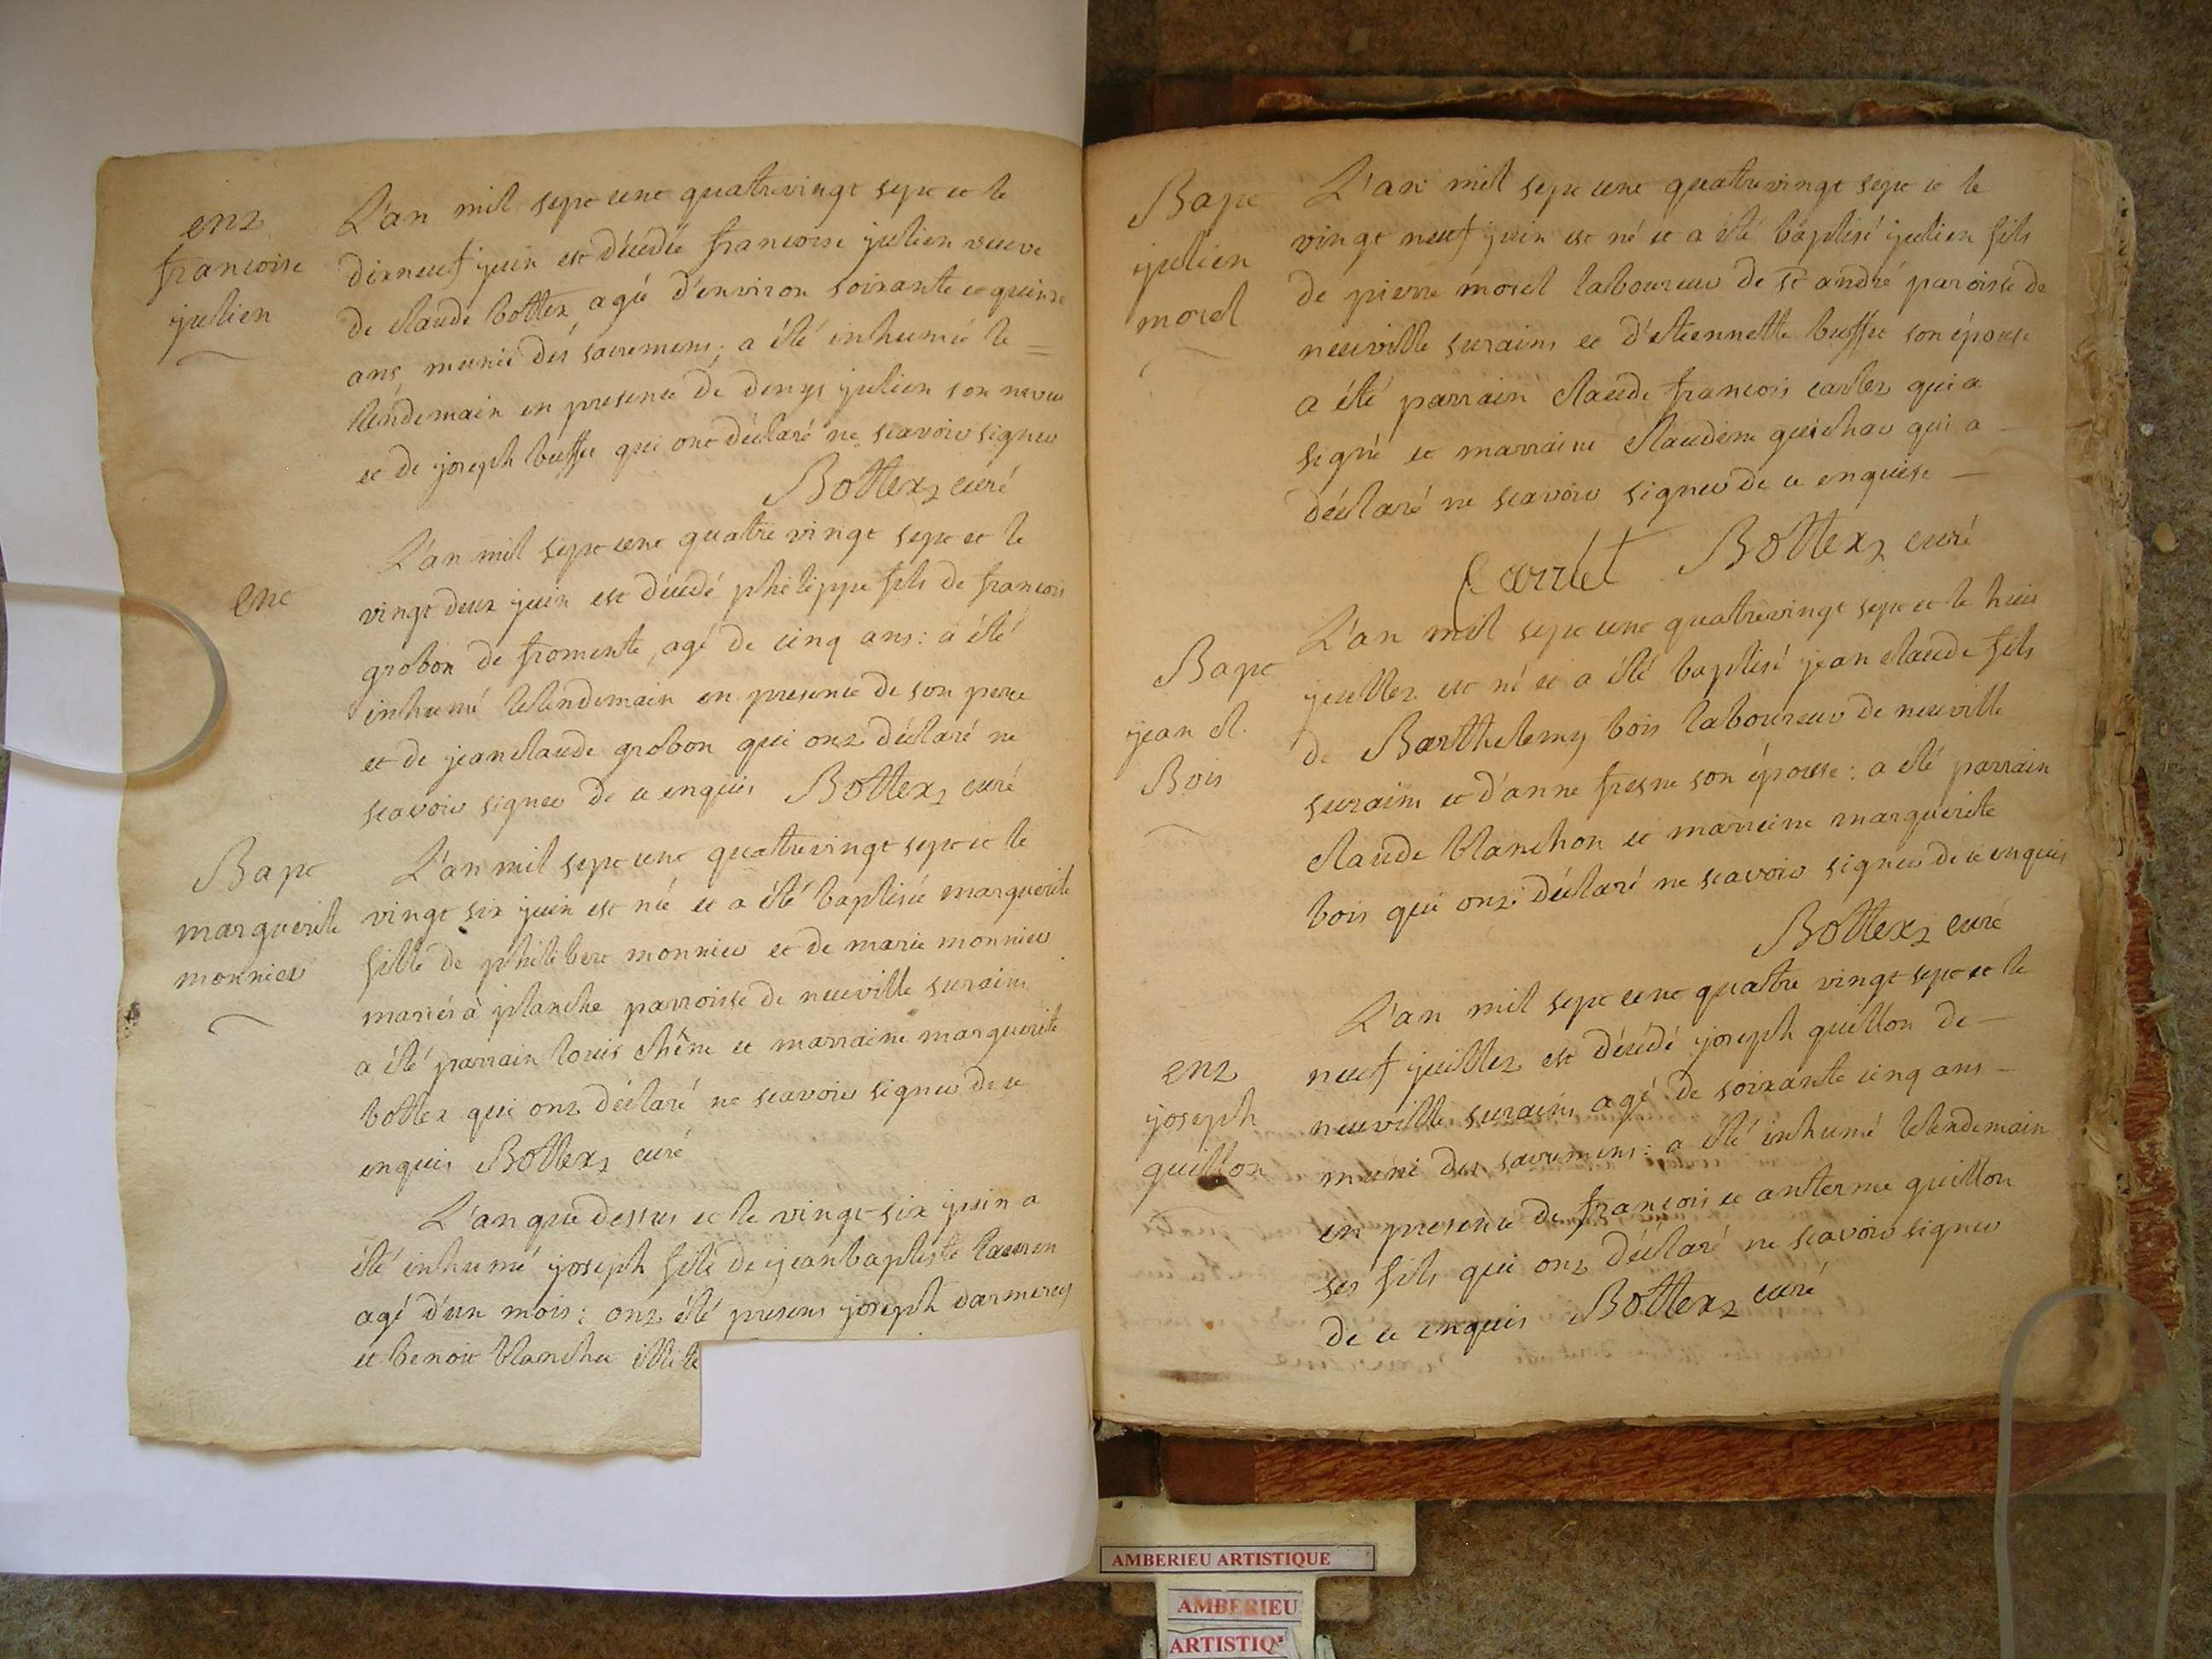 ent
francoise
julien
L'an mil sept cent quatrevingt sept et le
dixneuf juin est décédée francoise julien veuve
de claude bottex agée d'environ soixante et quinze
ans, munie des sacremens; a été inhumée le =
lendemain en presence de denys julien son neveu
et de joseph buffet qui ont déclaré ne scavoir signer
Bottex, curé
ent
L'an mil sept cent quatre vingt sept et le
vingt deux juin est décédé philippe fils de francois
grobon de fromente, agé de cinq ans: a été
inhumé le lendemain en presence de son pere
et de jean claude grobon qui ont déclaré ne
scavoir signer de ce enquis Bottex, curé
Bapt
marguerite
monnier
L'an mil sept cent quatrevingt sept et le
vingt six juin est née et a été baptisée marguerite
fille de philibert monnier et de marie monnier
mariés à planche parroisse de neuville surains
a été parrain louis chêne et marraine marguerite
bottex qui ont déclaré ne scavoir signer de ce
enquis Bottex, curé
L'an que dessus et le vingt-six juin a
été inhumé joseph fils de jean baptiste lauren
agé d'un mois: ont été presens joseph darmerey
et benoit blanchet
Bapt
julien
morel
L'an mil sept cent quatrevingt sept et le
vingt neuf juin est né et a été baptisé julien fils
de pierre morel laboureur de st andré paroisse de
neuville surains et d'etiennette buffet son épouse
a été parrain claude francois carlez qui a
signé et marraine claudine guichar qui a
déclaré ne scavoir signer de ce enquise —
Carrlet Bottex, curé
Bapt
jean cl.
Bois
L'an mil sept cent quatrevingt sept et le huit
juillet est né et a été baptisé jean claude fils
de Barthelemy bois laboureur de neuville
surains et d'anne fresne son épouse: a été parrain
claude blanchon et marraine marguerite
bois qui ont déclaré ne scavoir signer de ce enquis
Bottex, curé
ent
joseph
guillon
L'an mil sept cent quatre vingt sept et le
neuf juillet est décédé joseph guillon de —
neuville surains agé de soixante cinq ans —
muni des sacremens: a été inhumé le lendemain
en presence de francois et anterme guillon
ses fils qui ont déclaré ne scavoir signer
de ce enquis Bottex, curé
AMBERIEU ARTISTIQUE
AMBERIEU
ARTISTIQ